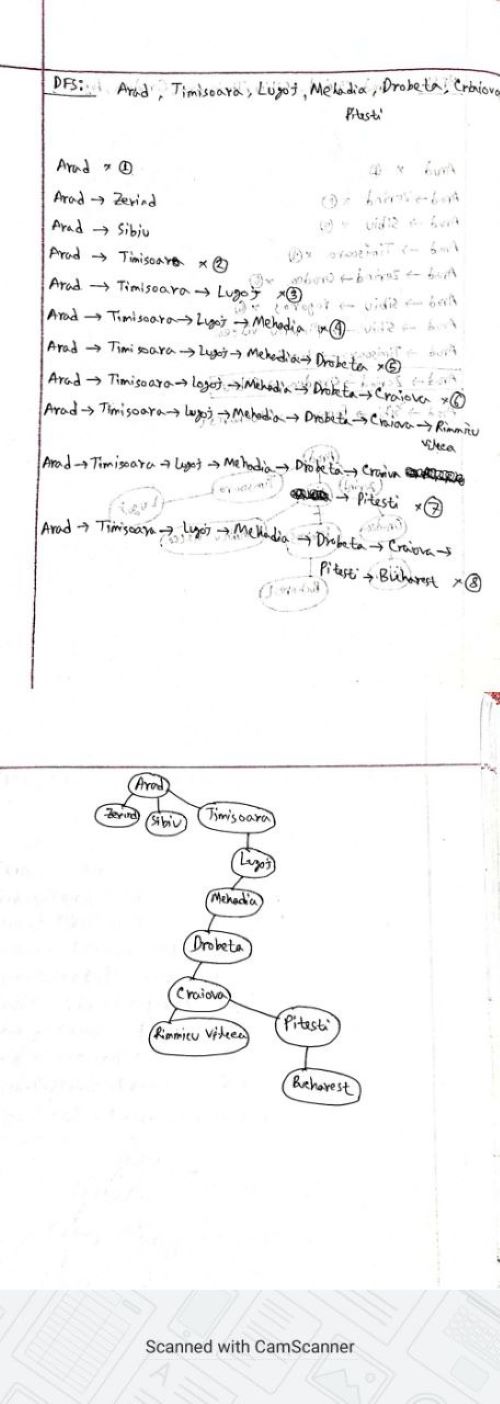 DFS: Arad, Timisoara, Lugoj, Mehadia, Drobeta, Craiova
Pitesti
Arad × ①
Arad → Zerind
Arad → Sibiu
Arad → Timisoara × ②
Arad → Timisoara → Lugoj × ③
Arad → Timisoara → Lugoj → Mehadia × ④
Arad → Timisoara → Lugoj → Mehadia → Drobeta × ⑤
Arad → Timisoara → Logoj → Mehadia → Drobeta → Craiova × ⑥
Arad → Timisoara → Lugoj → Mehadia → Drobeta → Craiova → Rimmicu
Vilcea
Arad → Timisoara → Lugoj → Mehadia → Drobeta → Craniva
→ Pitesti × ⑦
Arad → Timisoara → Lugoj → Mehadia → Drobeta → Craiova →
Pitesti → Bucharest × ⑧
Arad
Zerind Sibiu Timisoara
Lugoj
Mehadia
Drobeta
Craiova
Rimmicu Vilcea Pitesti
Bucharest
Scanned with CamScanner